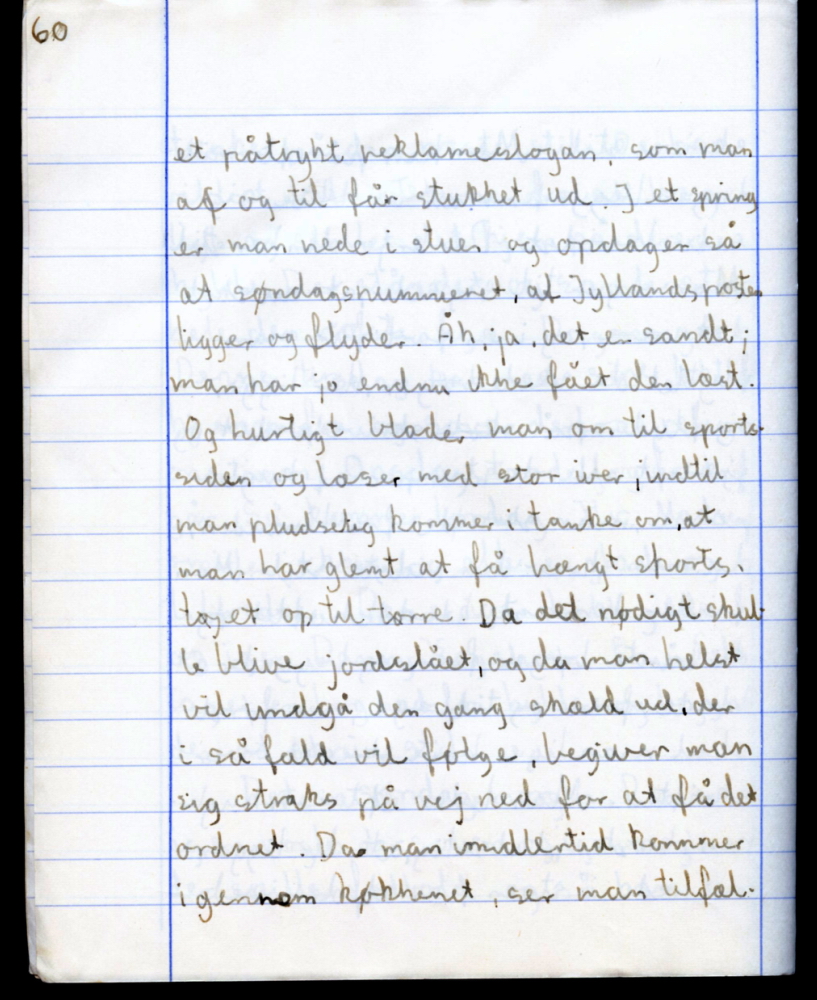 60
et påtrykt reklameslogan, som man
af og til får stukket ud. I et spring
er man nede i stuen og opdager så
at søndagsnummeret, af Jyllandsposten
ligger og flyder. Åh, ja, det er sandt;
man har jo endnu ikke fået den læst.
Og hurtigt blader man om til sports-
siden og læser med stor iver, indtil
man pludselig kommer i tanke om, at
man har glemt at få hængt sports-
tøjet op til tørre. Da det nødigt skul-
le blive jordslået, og da man helst
vil undgå den gang skæld ud, der
i så fald vil følge, begiver man
sig straks på vej ned for at få det
ordnet. Da man imidlertid kommer
igennem køkkenet, ser man tilfæl-